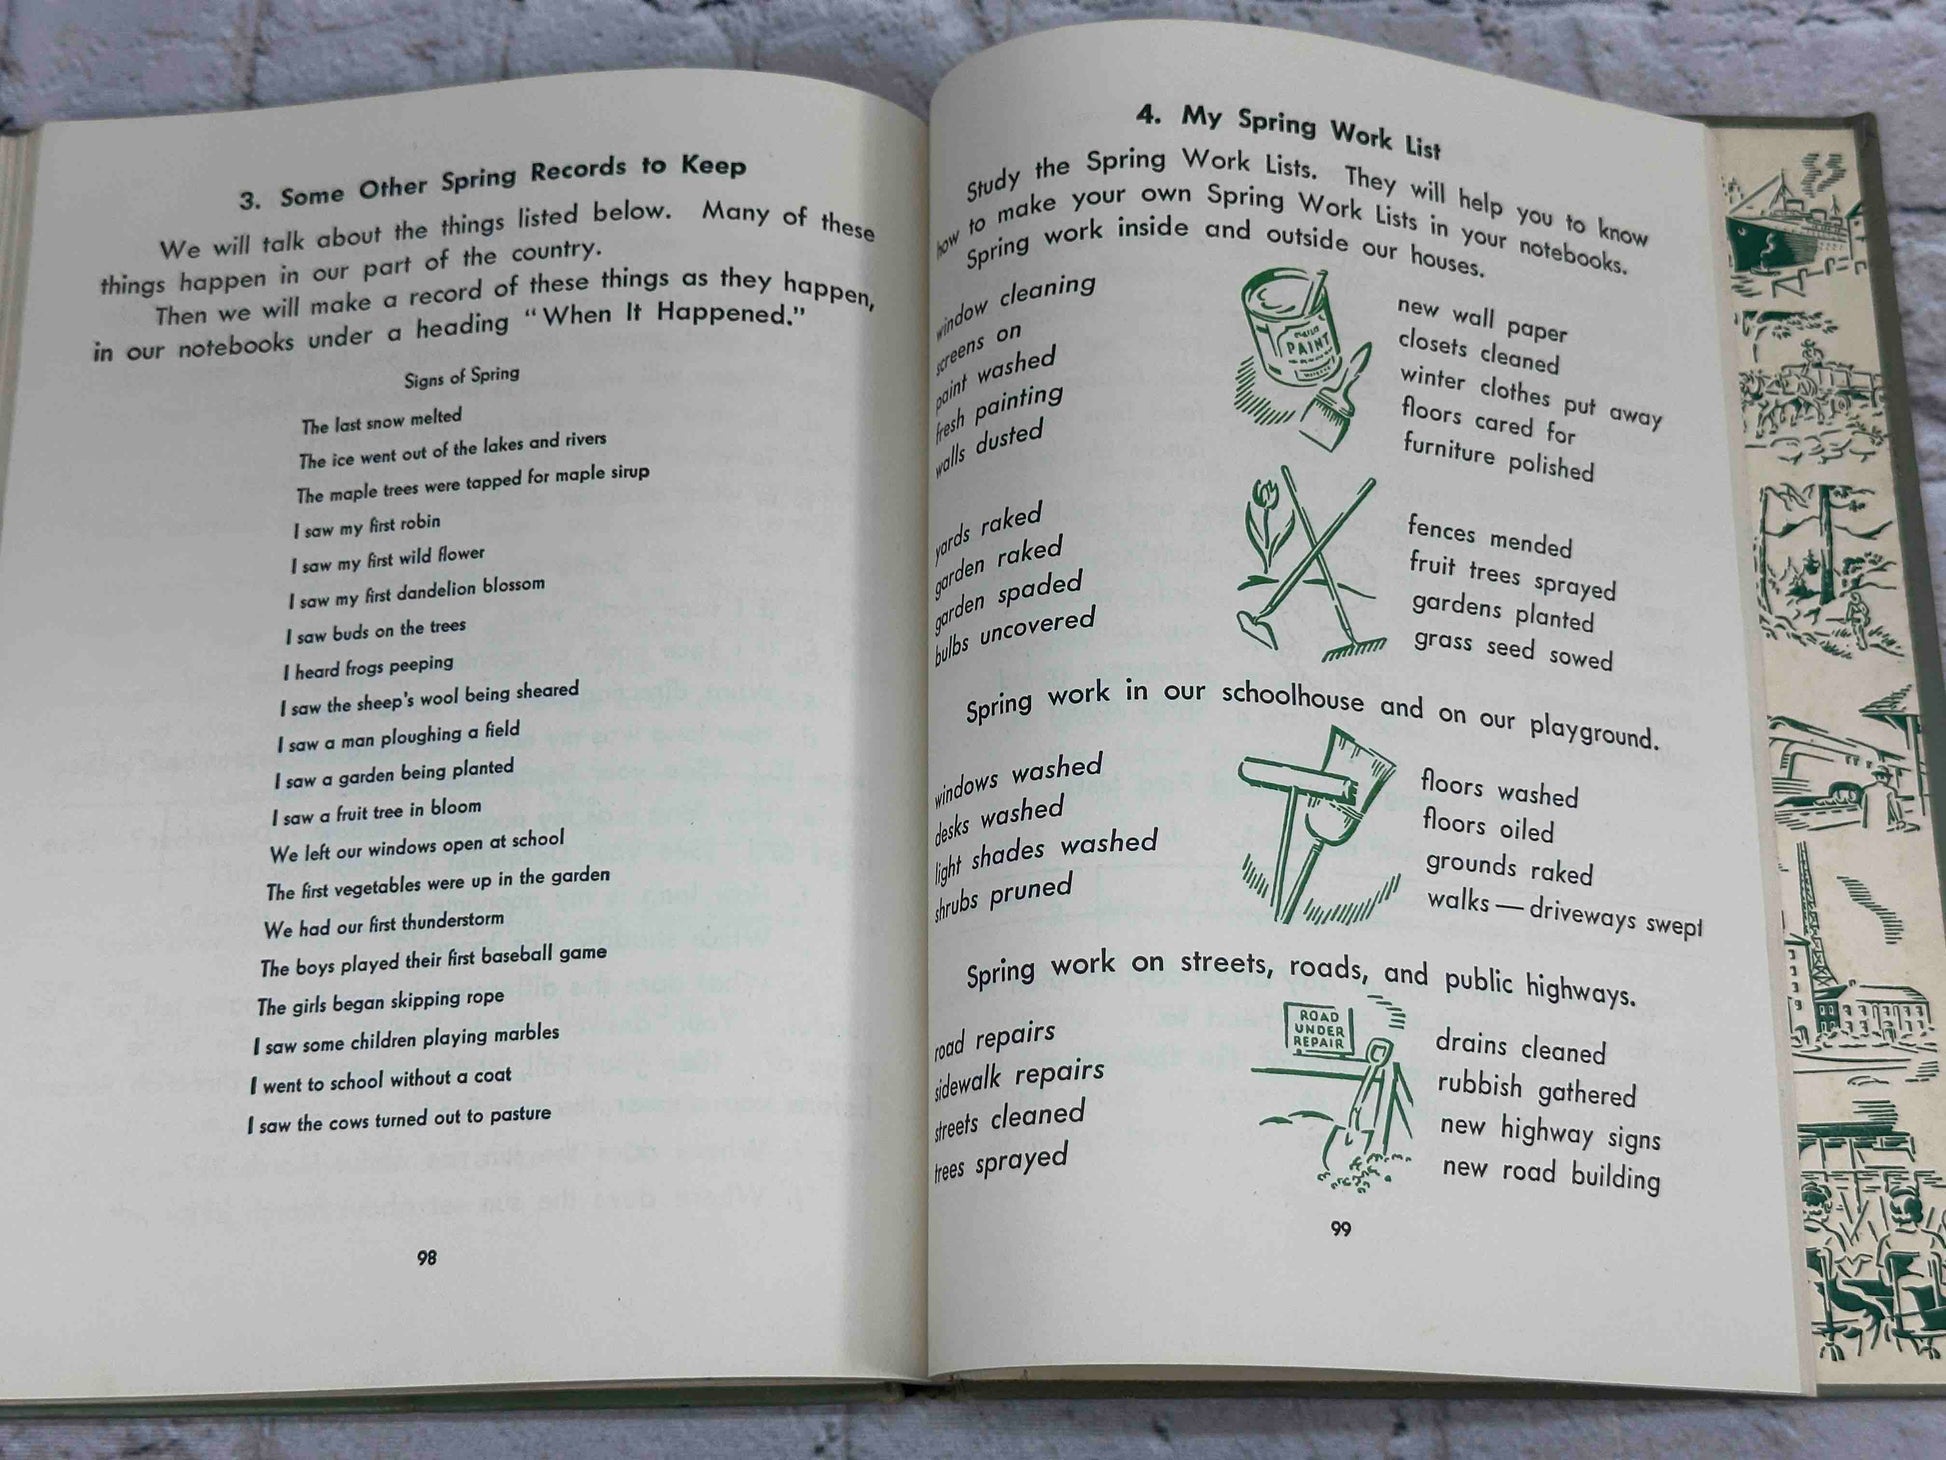 3. Some Other Spring Records to Keep
We will talk about the things listed below. Many of these
things happen in our part of the country.
Then we will make a record of these things as they happen,
in our notebooks under a heading "When It Happened."
Signs of Spring
The last snow melted
The ice went out of the lakes and rivers
The maple trees were tapped for maple sirup
I saw my first robin
I saw my first wild flower
I saw my first dandelion blossom
I saw buds on the trees
I heard frogs peeping
I saw the sheep's wool being sheared
I saw a man ploughing a field
I saw a garden being planted
I saw a fruit tree in bloom
We left our windows open at school
The first vegetables were up in the garden
We had our first thunderstorm
The boys played their first baseball game
The girls began skipping rope
I saw some children playing marbles
I went to school without a coat
I saw the cows turned out to pasture
98
4. My Spring Work List
Study the Spring Work Lists. They will help you to know
how to make your own Spring Work Lists in your notebooks.
Spring work inside and outside our houses.
window cleaning
screens on
paint washed
fresh painting
walls dusted
PAINT
new wall paper
closets cleaned
winter clothes put away
floors cared for
furniture polished
yards raked
garden raked
garden spaded
bulbs uncovered
fences mended
fruit trees sprayed
gardens planted
grass seed sowed
Spring work in our schoolhouse and on our playground.
windows washed
desks washed
light shades washed
shrubs pruned
floors washed
floors oiled
grounds raked
walks — driveways swept
Spring work on streets, roads, and public highways.
road repairs
sidewalk repairs
streets cleaned
trees sprayed
ROAD
UNDER
REPAIR
drains cleaned
rubbish gathered
new highway signs
new road building
99